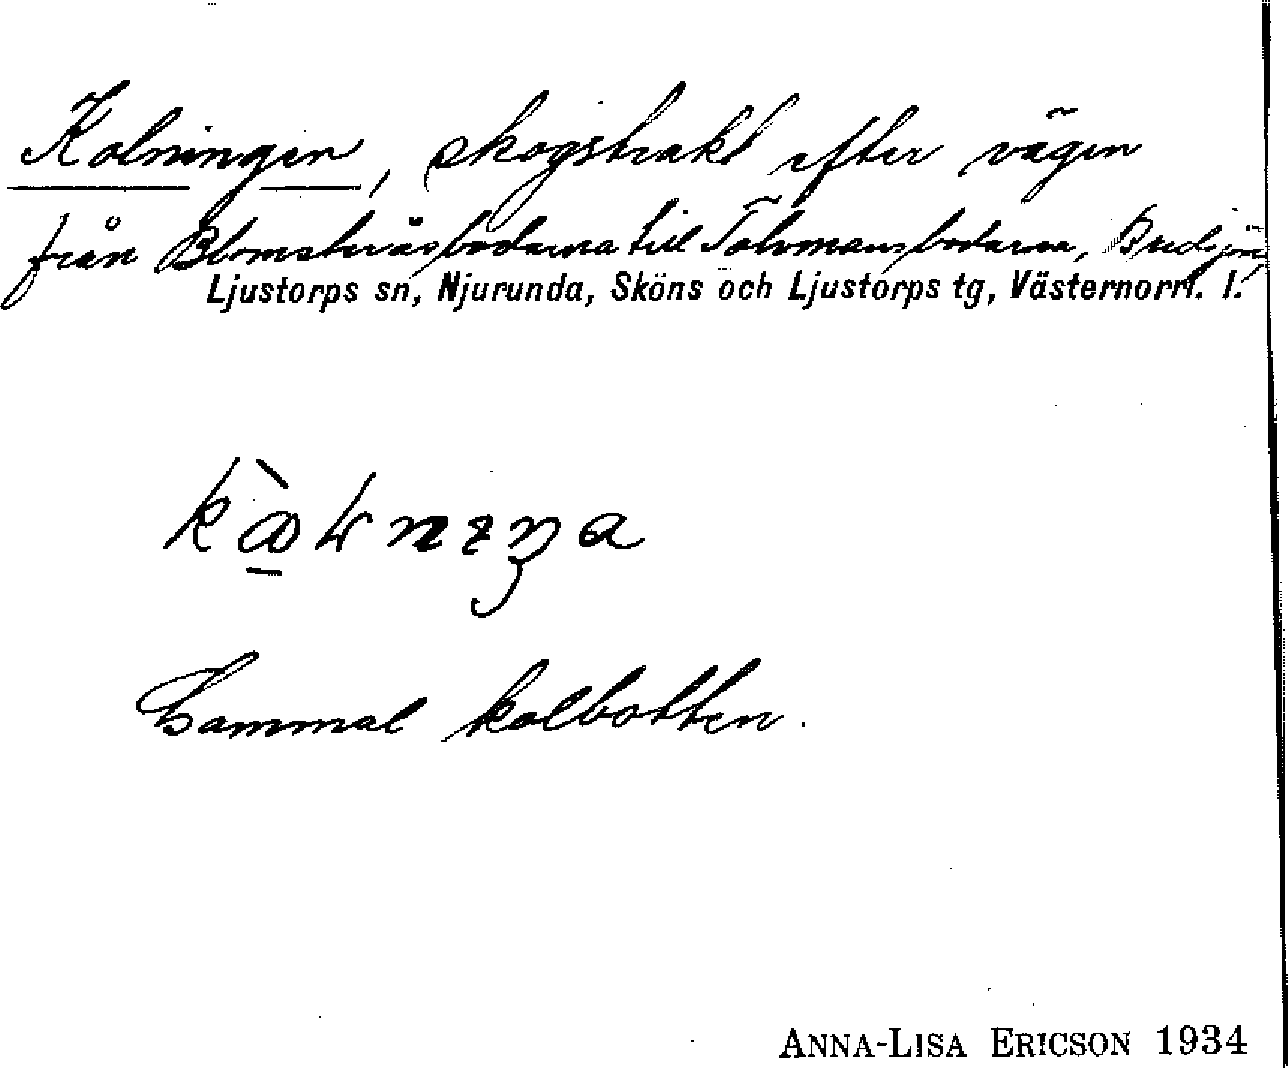 Kolningen, skogstrakt efter vägen
från Blomsteråsbodarna till Tälvmansbodarna, Bredsjön,
Ljustorps sn, Njurunda, Sköns och Ljustorps tg, Västernorrl. l.
Gammal kolbotten.
ANNA-LISA ERICSON 1934